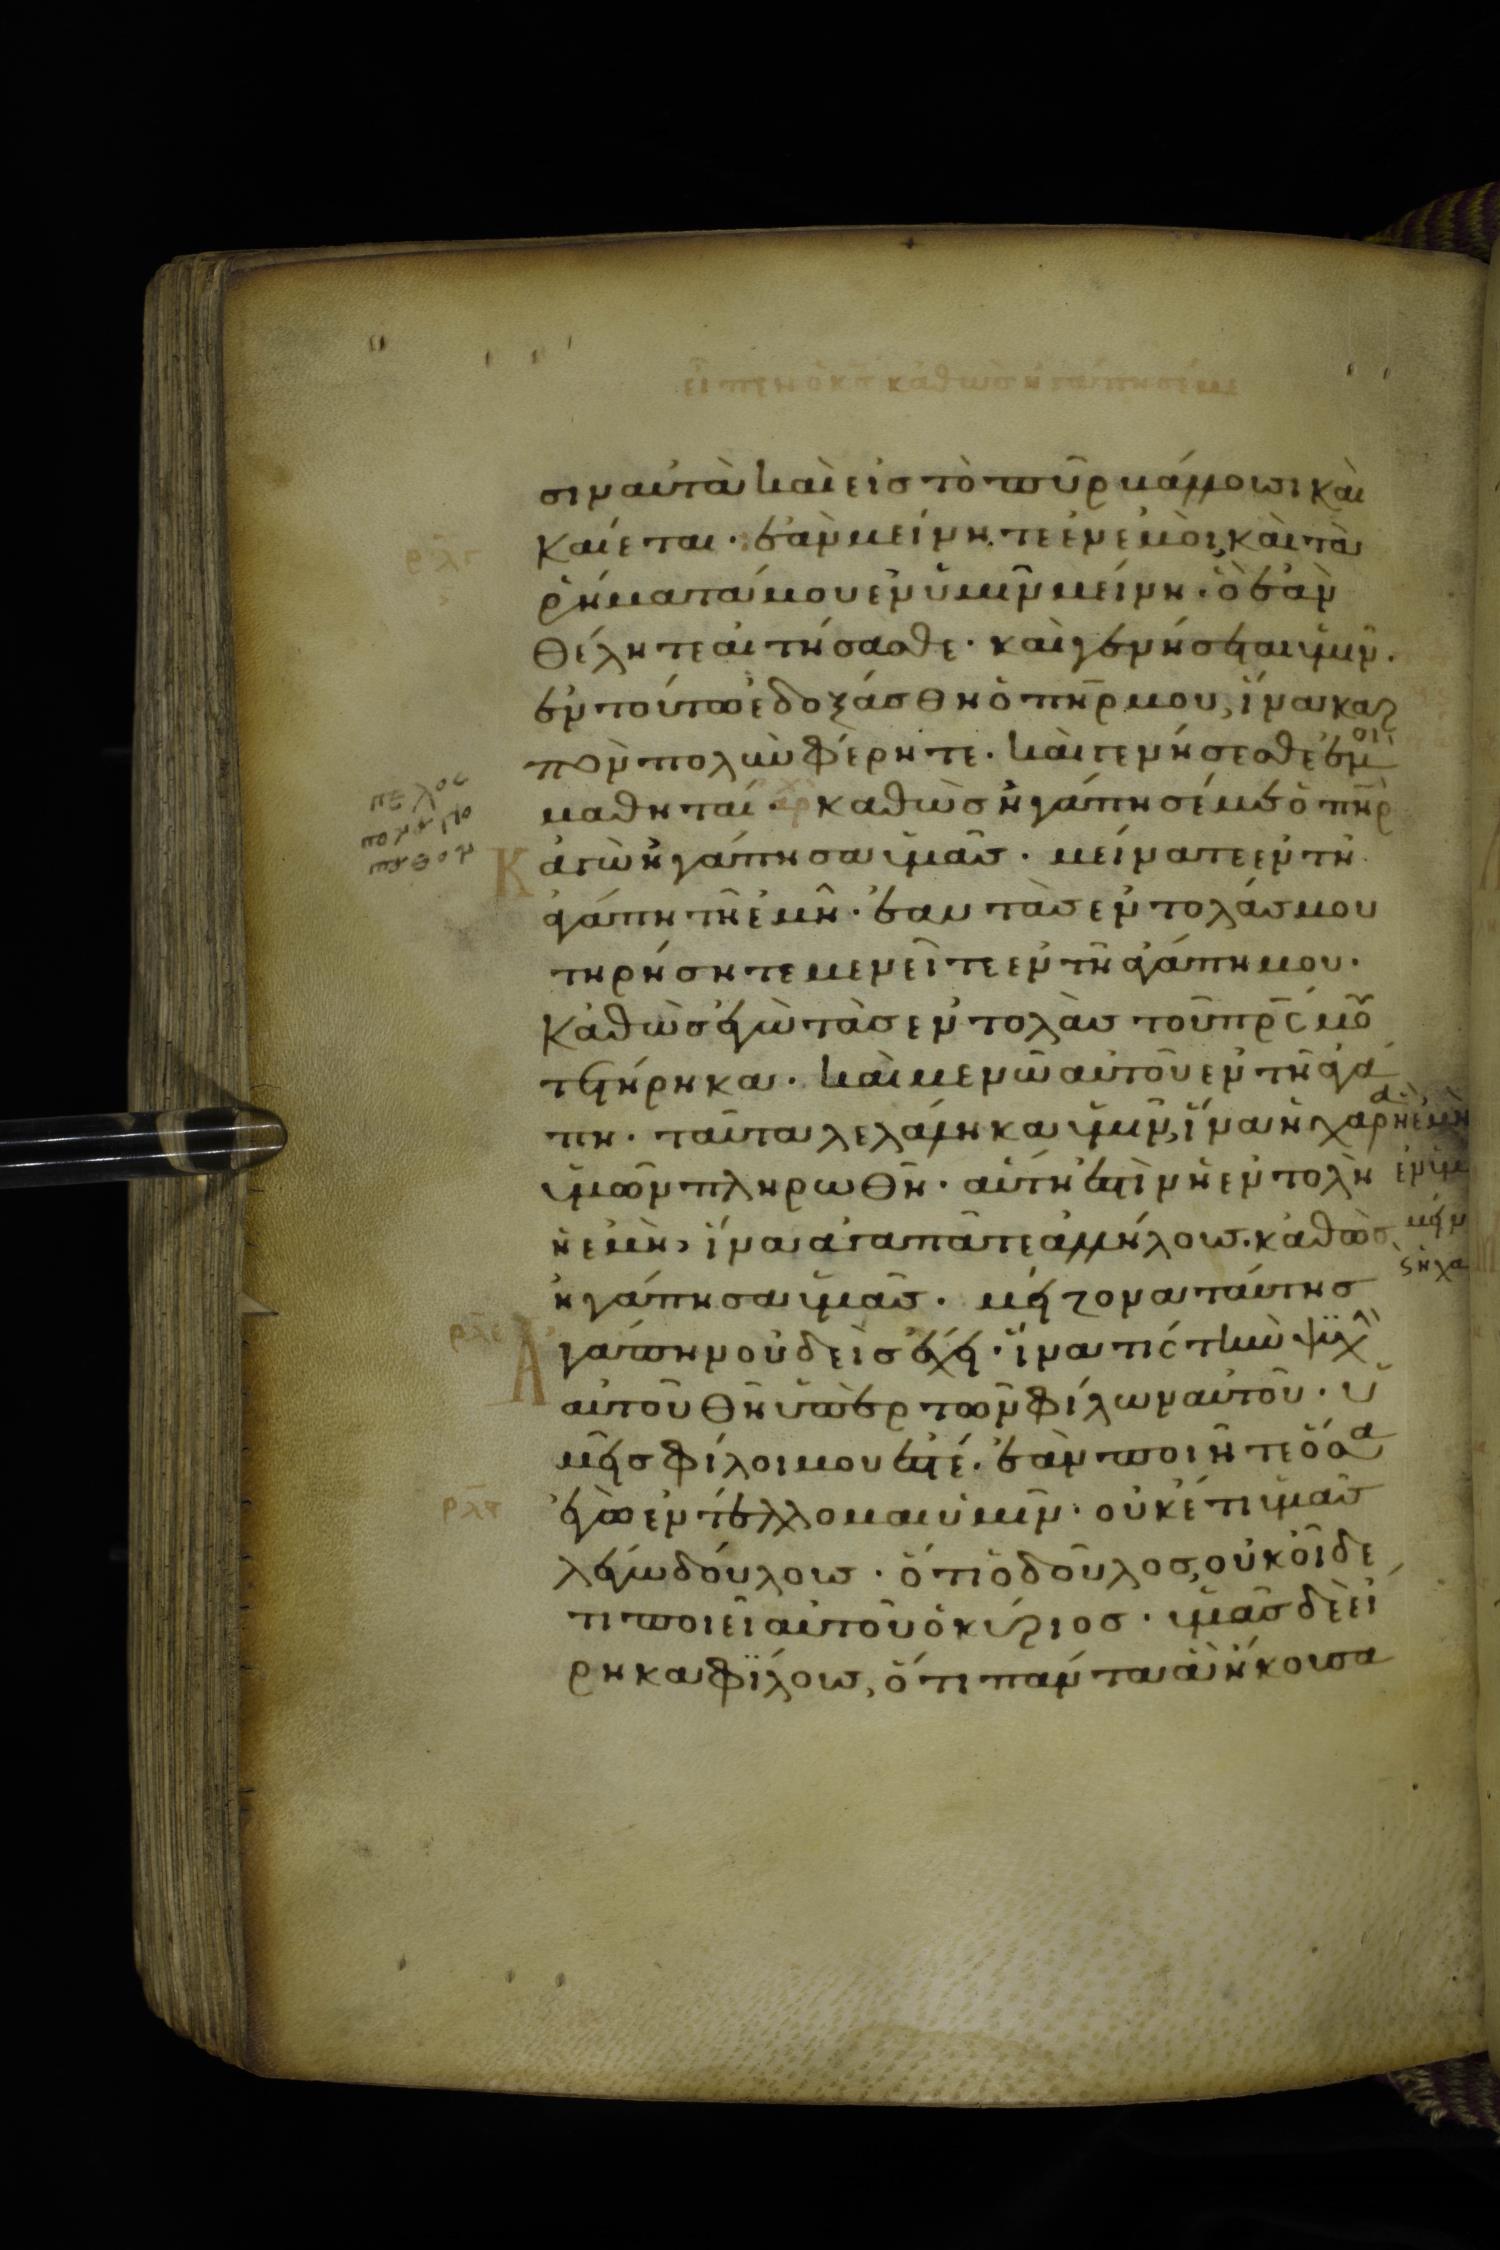 εἶπεν ὁ κ̅ς̅ καθὼς ἠγάπησέ με
σιν αὐτὰ καὶ εἰς τὸ πῦρ βάλλουσι καὶ
καίεται · ἐὰν μείνητε ἐν ἐμοὶ, καὶ τὰ
ῥήματά μου ἐν ὑμῖν μείνη · ὃ ἐὰν
θέλητε αἰτήσασθε · καὶ γενήσεται ὑμῖν ·
ἐν τούτω ἐδοξάσθη ὁ π̅η̅ρ μου, ἵνα καρ
πὸν πολὺν φέρητε · καὶ γενήσεσθε ἐμοὶ
μαθηταί · καθὼς ἠγάπησέ με ὁ π̅η̅ρ
κἀγὼ ἠγάπησα ὑμᾶς · μείνατε ἐν τῆ
ἀγάπη τῆ ἐμῆ · ἐὰν τὰς ἐντολάς μου
τηρήσητε μενεῖτε ἐν τῆ ἀγάπη μου ·
Καθὼς ἐγὼ τὰς ἐντολὰς τοῦ π̅ρ̅ς μου
τετήρηκα · καὶ μενῶ αὐτοῦ ἐν τῆ ἀγά
πη · ταῦτα λελάληκα ὑμῖν, ἵνα ἡ χαρὰ ἡ ἐμὴ
ὑμῶν πληρωθῆ · αὕτη ἐστὶν ἡ ἐντολὴ
ἡ ἐμὴ, ἵνα ἀγαπᾶτε ἀλλήλους · καθὼς
ἠγάπησα ὑμᾶς · μείζονα ταύτης
ἀγάπην οὐδεὶς ἔχει · ἵνα τις τὴν ψυχὴν
αὐτοῦ θῆ ὑπὲρ τῶν φίλων αὐτοῦ · ὑ
μεῖς φίλοι μου ἐστέ · ἐὰν ποιῆτε ὅσα
ἐγὼ ἐντέλλομαι ὑμῖν · οὐκέτι ὑμᾶς
λέγω δούλους · ὅτι ὁ δοῦλος, οὐκ οἶδε
τί ποιεῖ αὐτοῦ ὁ κύριος · ὑμᾶς δὲ εἴ
ρηκα φίλους, ὅτι πάντα ἃ ἤκουσα
ρλε